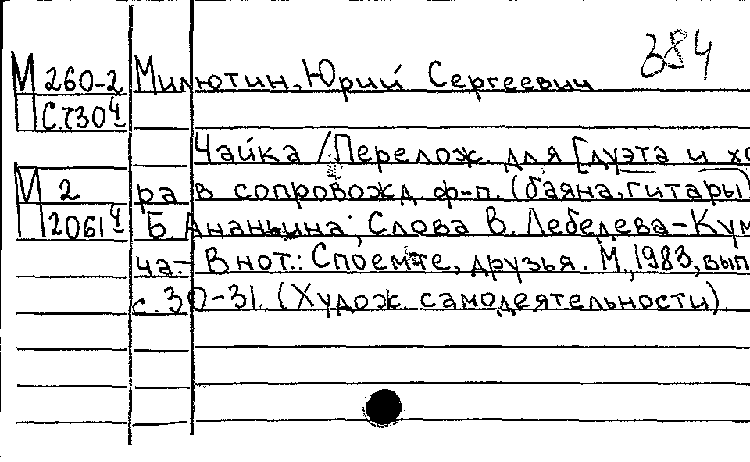 384
М 260-2 Милютин, Юрий Сергеевич
П С.730ч
Чайка / Перелож. для [дуэта и хо
М 2 ра в сопровожд. ф-п. (баяна, гитары)
П 2061ч Б. Ананьина; Слова В. Лебедева-Кум
ча.- В нот.: Споемте, друзья. М., 1983, вып
с. 30-31. (Худож. самодеятельности)